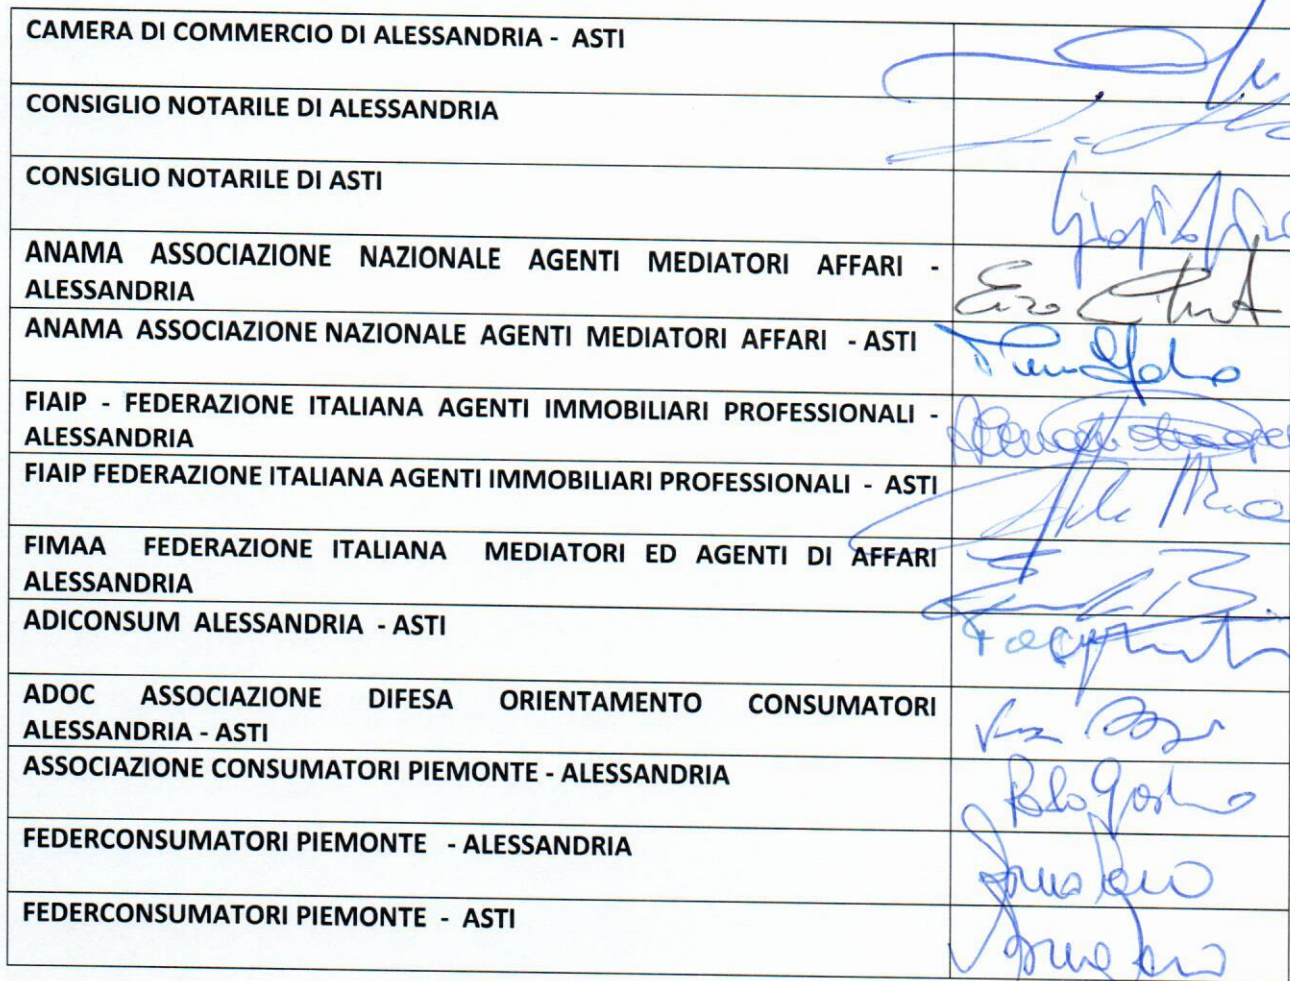 CAMERA DI COMMERCIO DI ALESSANDRIA - ASTI
CONSIGLIO NOTARILE DI ALESSANDRIA
CONSIGLIO NOTARILE DI ASTI
ANAMA ASSOCIAZIONE NAZIONALE AGENTI MEDIATORI AFFARI -
ALESSANDRIA
ANAMA ASSOCIAZIONE NAZIONALE AGENTI MEDIATORI AFFARI - ASTI
FIAIP - FEDERAZIONE ITALIANA AGENTI IMMOBILIARI PROFESSIONALI -
ALESSANDRIA
FIAIP FEDERAZIONE ITALIANA AGENTI IMMOBILIARI PROFESSIONALI - ASTI
FIMAA FEDERAZIONE ITALIANA MEDIATORI ED AGENTI DI AFFARI
ALESSANDRIA
ADICONSUM ALESSANDRIA - ASTI
ADOC ASSOCIAZIONE DIFESA ORIENTAMENTO CONSUMATORI
ALESSANDRIA - ASTI
ASSOCIAZIONE CONSUMATORI PIEMONTE - ALESSANDRIA
FEDERCONSUMATORI PIEMONTE - ALESSANDRIA
FEDERCONSUMATORI PIEMONTE - ASTI